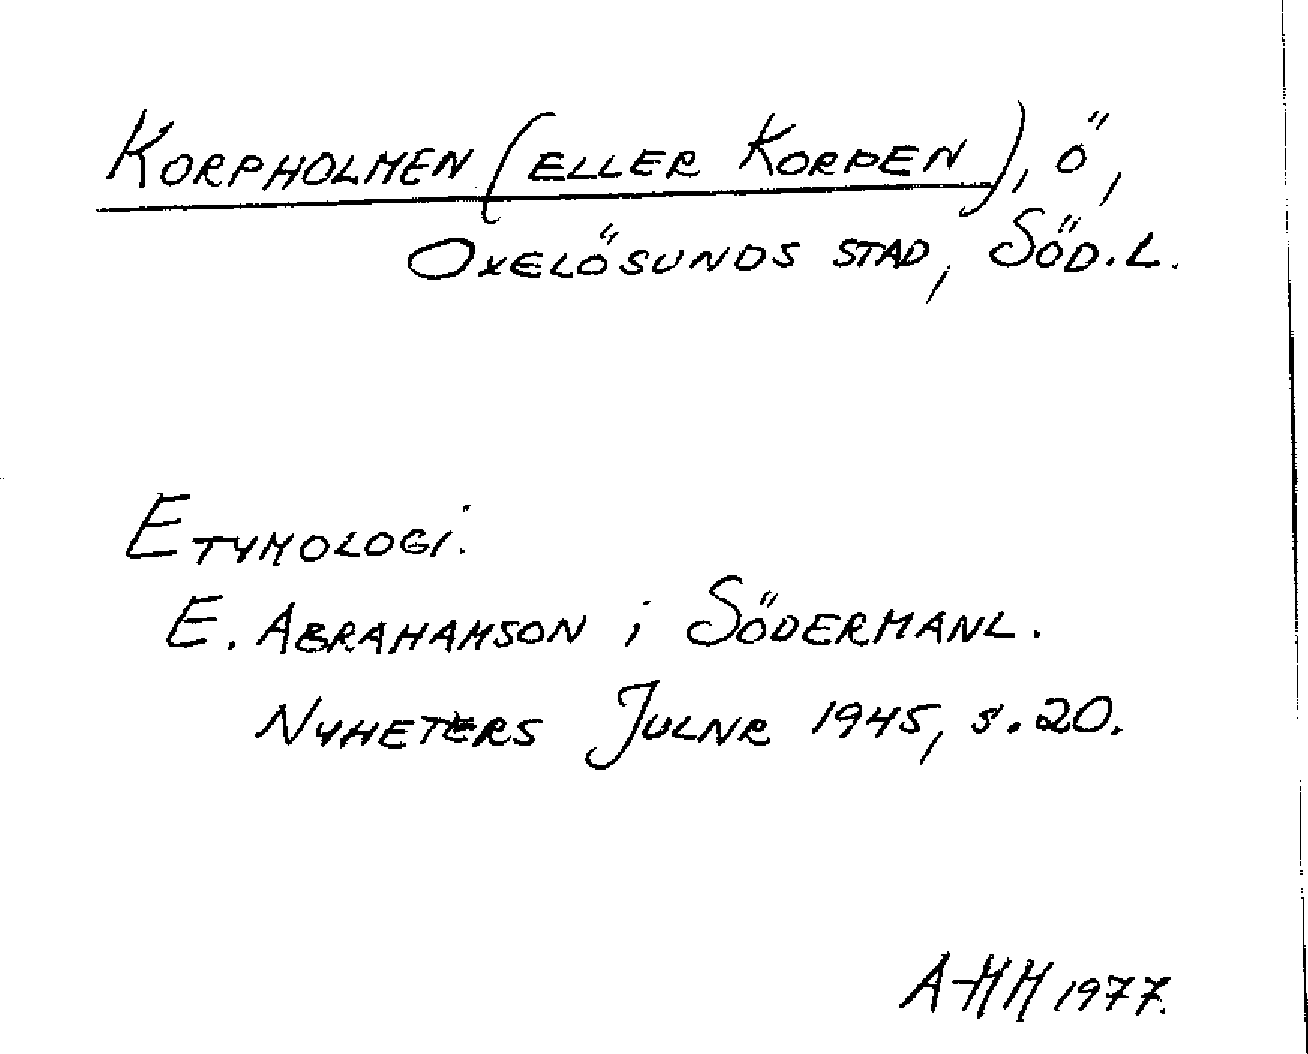 Korpholmen (eller Korpen), ö,
Oxelösunds stad, Söd.l.
Etymologi:
E. Abrahamson i Södermanl.
Nyheters Julnr 1945, s. 20.
A-MM 1977.